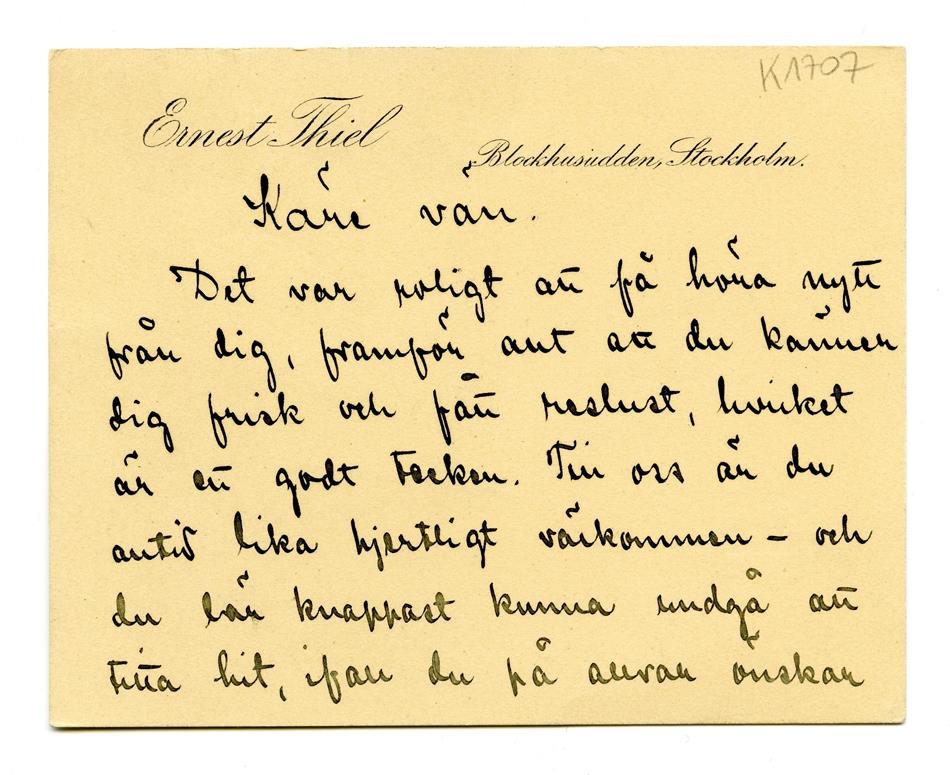 K1707
Ernest Thiel
Blockhusudden, Stockholm.
Käre vän.
Det var roligt att få höra nytt
från dig, framför allt att du känner
dig frisk och fått reslust, hvilket
är ett godt tecken. Till oss är du
alltid lika hjertligt välkommen – och
du lär knappast kunna undgå att
titta hit, ifall du på allvar önskar